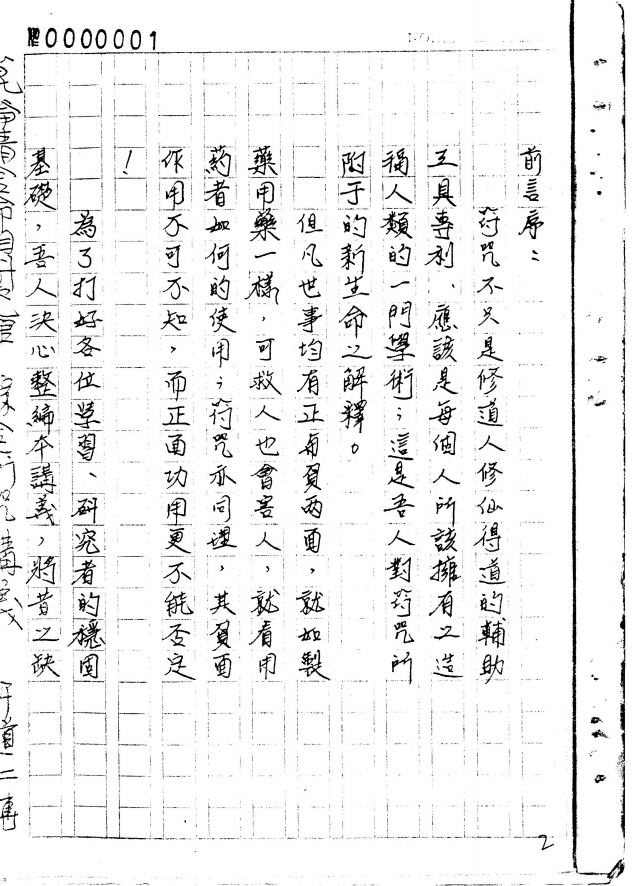 №0000001
NO.
前言序：
符咒不只是修道人修仙得道的輔助
工具專利、應該是每個人所該擁有之造
福人類的一門學術；這是吾人對符咒所
附于的新生命之解釋。
但凡世事均有正與負兩面，就如製
藥用藥一樣，可救人也會害人，就看用
药者如何的使用；符咒亦同理，其負面
作用不可不知，而正面功用更不能否定
！
為了打好各位學習、研究者的穩固
基礎，吾人決心整編本講義，將昔之缺
符咒講義
2